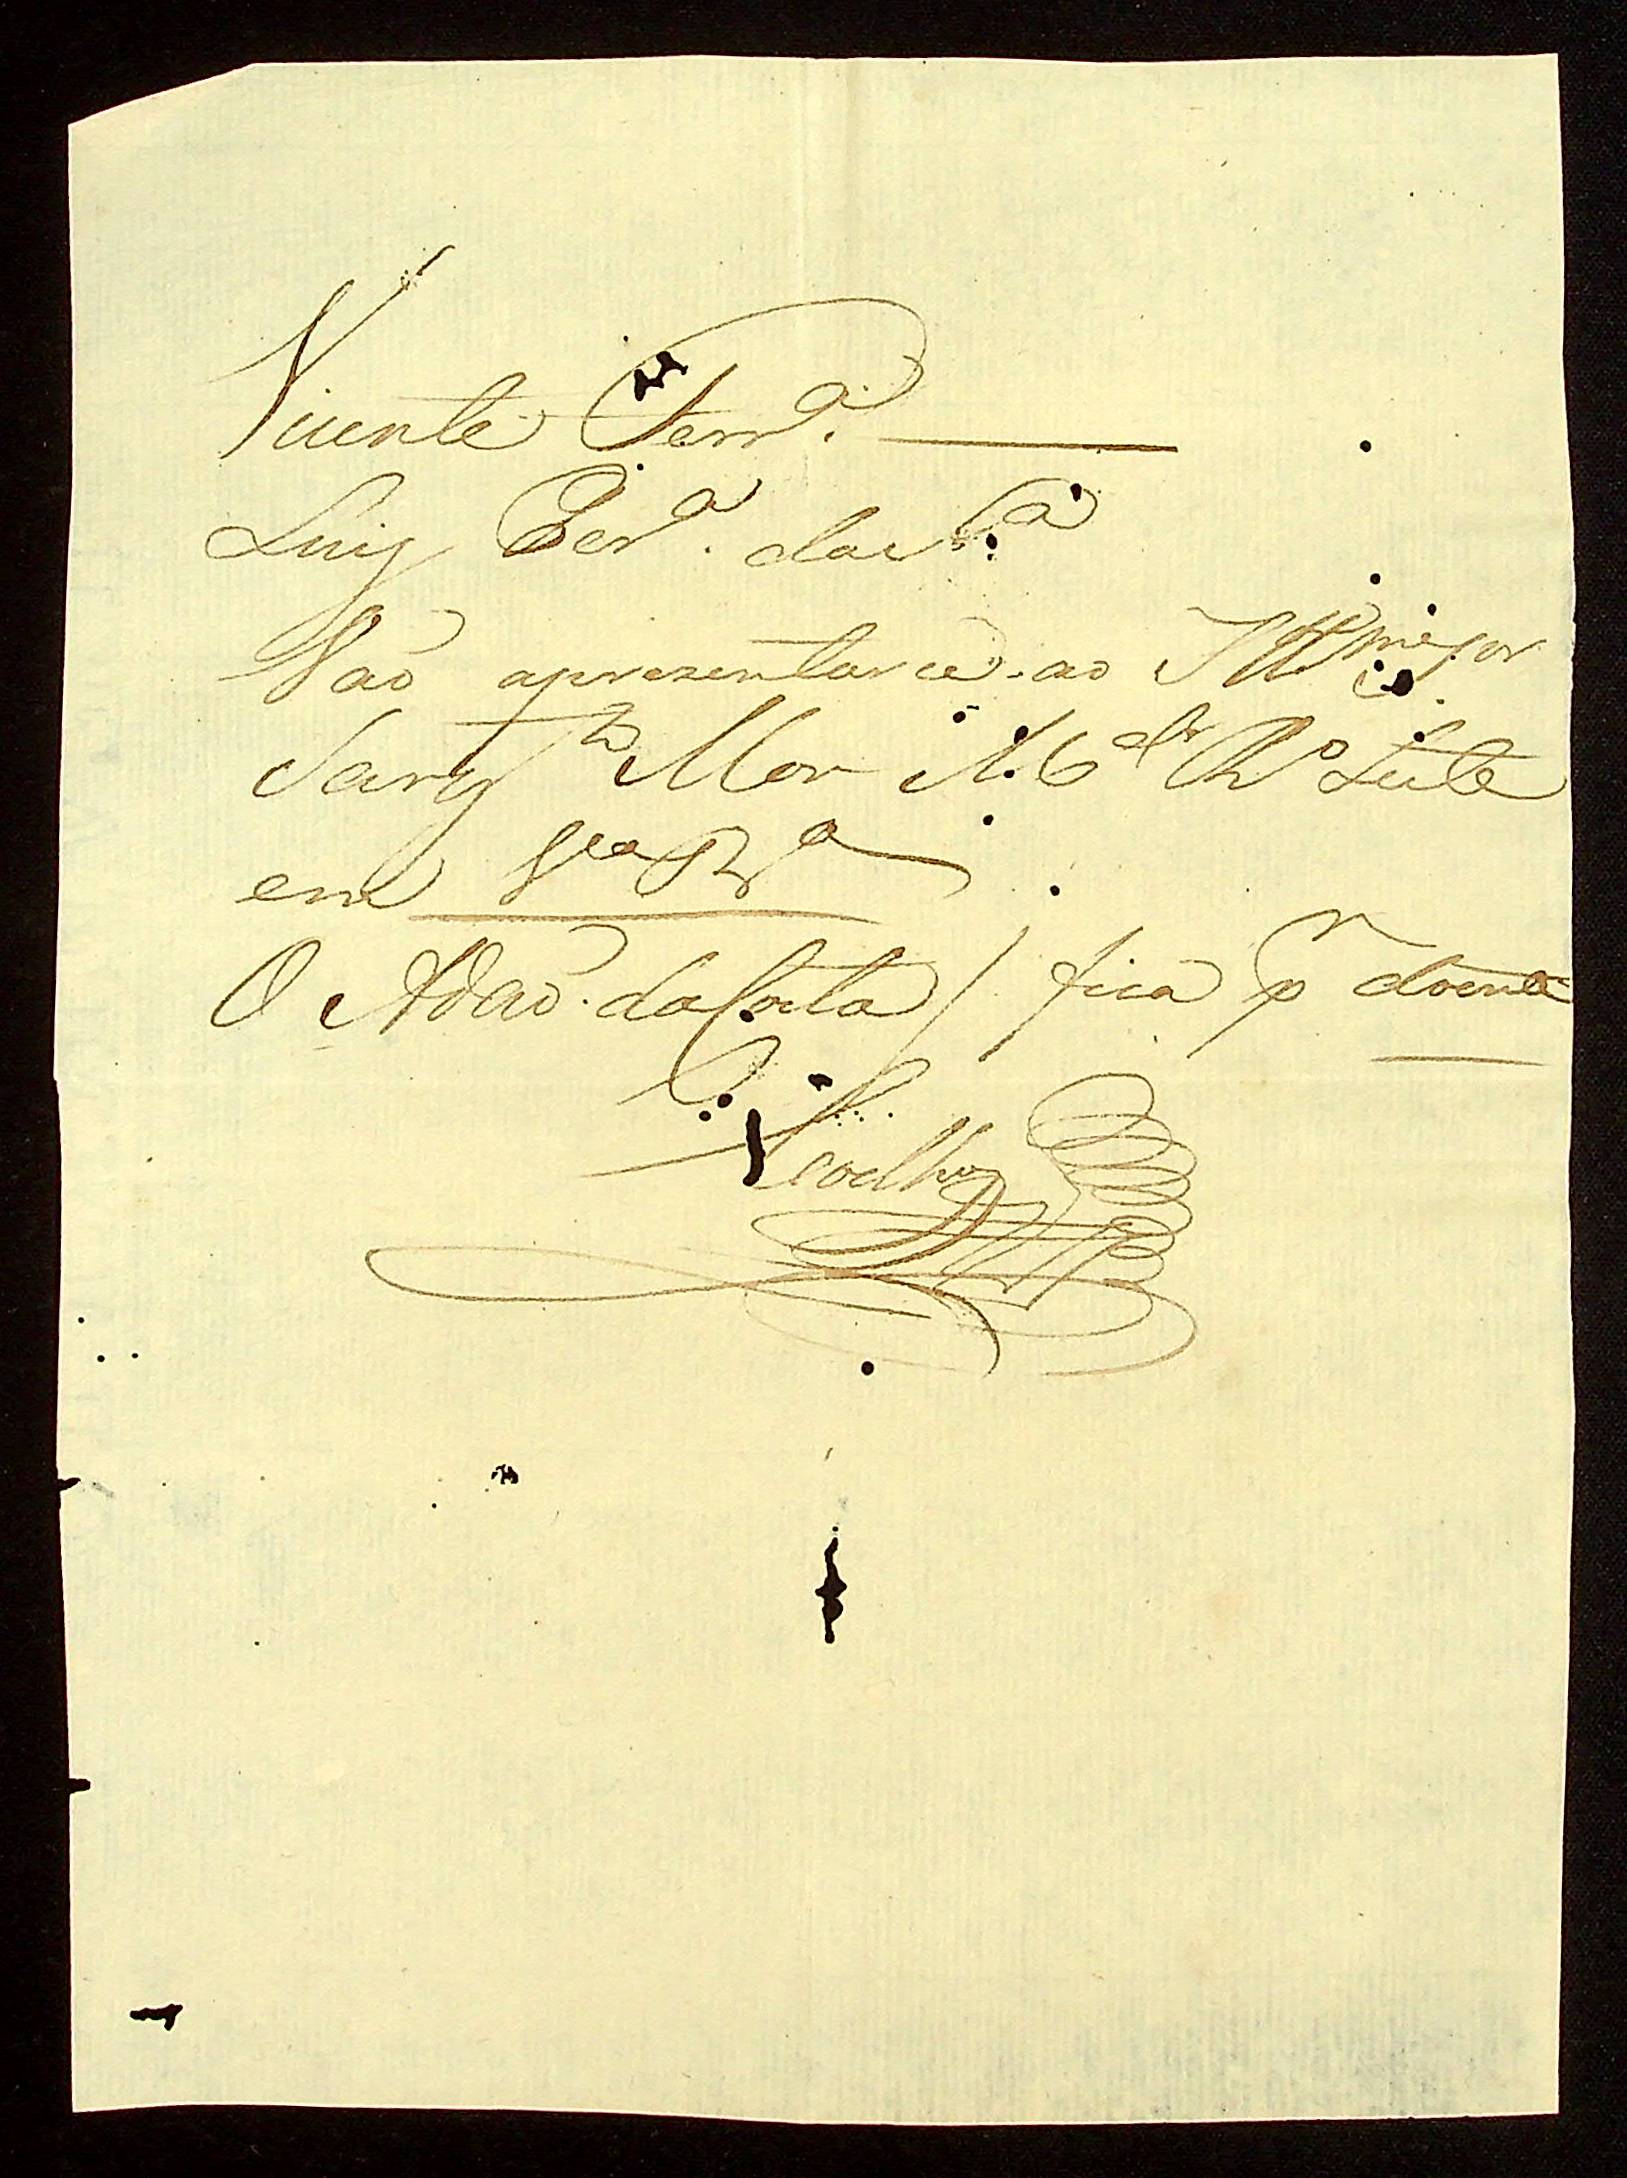 Vicente Ferr.ª
Luiz Per.ª da S.ª
Vaõ aprezentarce ao Ill.mo Snr
Sarg.to Mor M.el R.o Leite
em V.a R.a
O Adaõ da Costa / fica p.r doente
Coelho